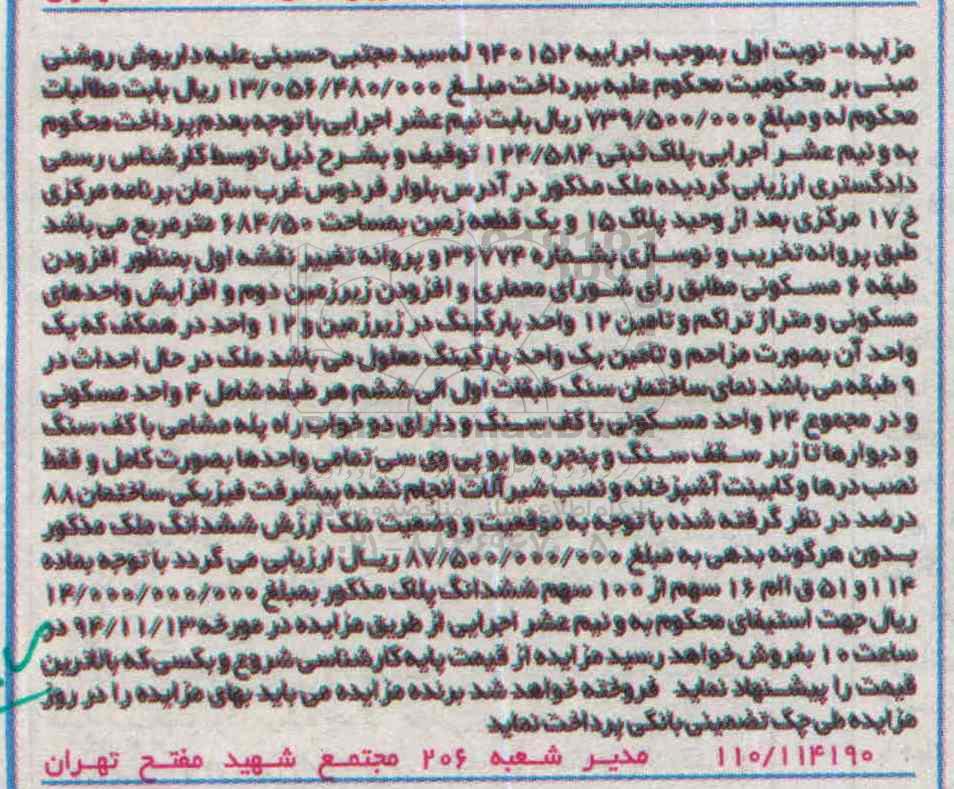 مزایده - نوبت اول بموجب اجراییه ۹۴۰۱۵۲ له سید مجتبی حسینی علیه داریوش روشنی
مبنی بر محکومیت محکوم علیه بپرداخت مبلغ ۱۳/۰۵۶/۴۸۰/۰۰۰ ریال بابت مطالبات
محکوم له و مبلغ ۷۳۹/۵۰۰/۰۰۰ ریال بابت نیم عشر اجرایی با توجه بعدم پرداخت محکوم
به و نیم عشر اجرایی پلاک ثبتی ۱۲۴/۵۸۴ توقیف و بشرح ذیل توسط کارشناس رسمی
دادگستری ارزیابی گردیده ملک مذکور در آدرس بلوار فردوس غرب سازمان برنامه مرکزی
خ ۱۷ مرکزی بعد از وحید پلاک ۱۵ و یک قطعه زمین بمساحت ۶۸۴/۵۰ متر مربع می باشد
طبق پروانه تخریب و نوسازی بشماره ۳۶۷۷۴ و پروانه تغییر نقشه اول بمنظور افزودن
طبقه ۶ مسکونی مطابق رای شورای معماری و افزودن زیرزمین دوم و افزایش واحدهای
مسکونی و متراز تراکم و تامین ۱۲ واحد پارکینگ در زیرزمین و ۱۲ واحد در همکف که یک
واحد آن بصورت مزاحم و تامین یک واحد پارکینگ معلول می باشد ملک در حال احداث در
۹ طبقه می باشد نمای ساختمان سنگ طبقات اول الی ششم هر طبقه شامل ۴ واحد مسکونی
و در مجموع ۲۴ واحد مسکونی با کف سنگ و دارای دو خواب راه پله مشاعی با کف سنگ
و دیوارها تا زیر سقف سنگ و پنجره ها یو پی وی سی تمامی واحدها بصورت کامل و فقط
نصب درها و کابینت آشپزخانه و نصب شیرآلات انجام نشده پیشرفت فیزیکی ساختمان ۸۸
درصد در نظر گرفته شده با توجه به موقعیت و وضعیت ملک ارزش ششدانگ ملک مذکور
بدون هرگونه بدهی به مبلغ ۸۷/۵۰۰/۰۰۰/۰۰۰ ریال ارزیابی می گردد با توجه بماده
۱۱۴ و ۵۱ ق اام ۱۶ سهم از ۱۰۰ سهم ششدانگ پلاک مذکور بمبلغ ۱۴/۰۰۰/۰۰۰/۰۰۰
ریال جهت استیفای محکوم به و نیم عشر اجرایی از طریق مزایده در مورخه ۹۴/۱۱/۱۳ در
ساعت ۱۰ بفروش خواهد رسید مزایده از قیمت پایه کارشناسی شروع و بکسی که بالاترین
قیمت را پیشنهاد نماید فروخته خواهد شد برنده مزایده می باید بهای مزایده را در روز
مزایده طی چک تضمینی بانکی پرداخت نماید
۱۱۰/۱۱۴۱۹۰ مدیر شعبه ۲۰۶ مجتمع شهید مفتح تهران